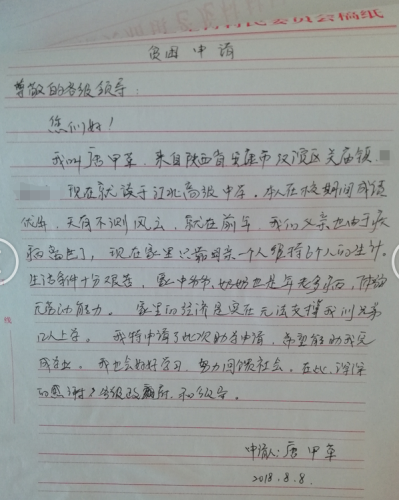 委员会稿纸
贫困申请
尊敬的各级领导：
您们好！
我叫唐甲草，来自陕西省安康市汉滨区关庙镇
现在就读于江北高级中学。本人在校期间成绩
优异，天有不测风云，就在前年，我们父亲也由于疾
病去世了，现在家里只靠母亲一个人维持6个人的生计。
生活条件十分艰苦，家中爷爷、奶奶也是年老多病，
无劳动能力。家里的经济是实在无法支撑我们兄弟
几人上学。我特申请了此次助学申请，希望能助我完
成学业。我也会好好学习，努力回馈社会，在此，深深
的感谢各级政府和领导。
申请人：唐甲草
2018.8.8.